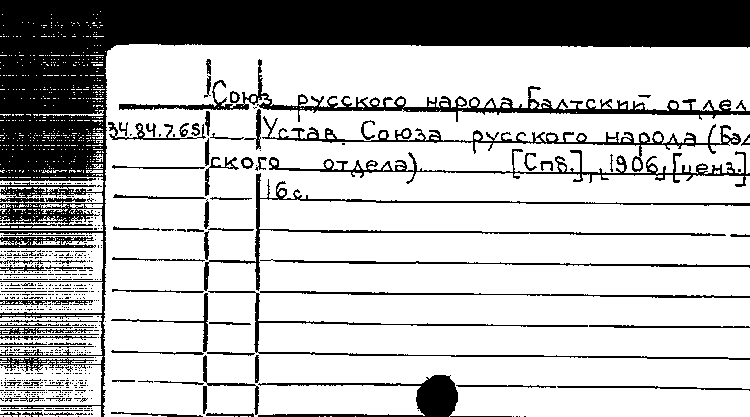 Союз русского народа. Балтский отдел
34.84.7.651. Устав Союза русского народа (Бал
ского отдела) [Спб.], 1906, [ценз.]
16 с.